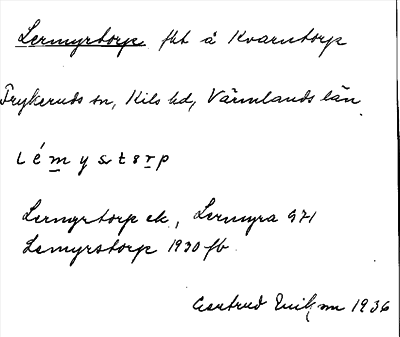 Lermyrtorp fht å Kvarntorp
Frykeruds sn, Kils hd, Värmlands län
Lermyrtorp ek, Lermyra G71
Lemyrstorp 1930 fb.
Gertrud 1936